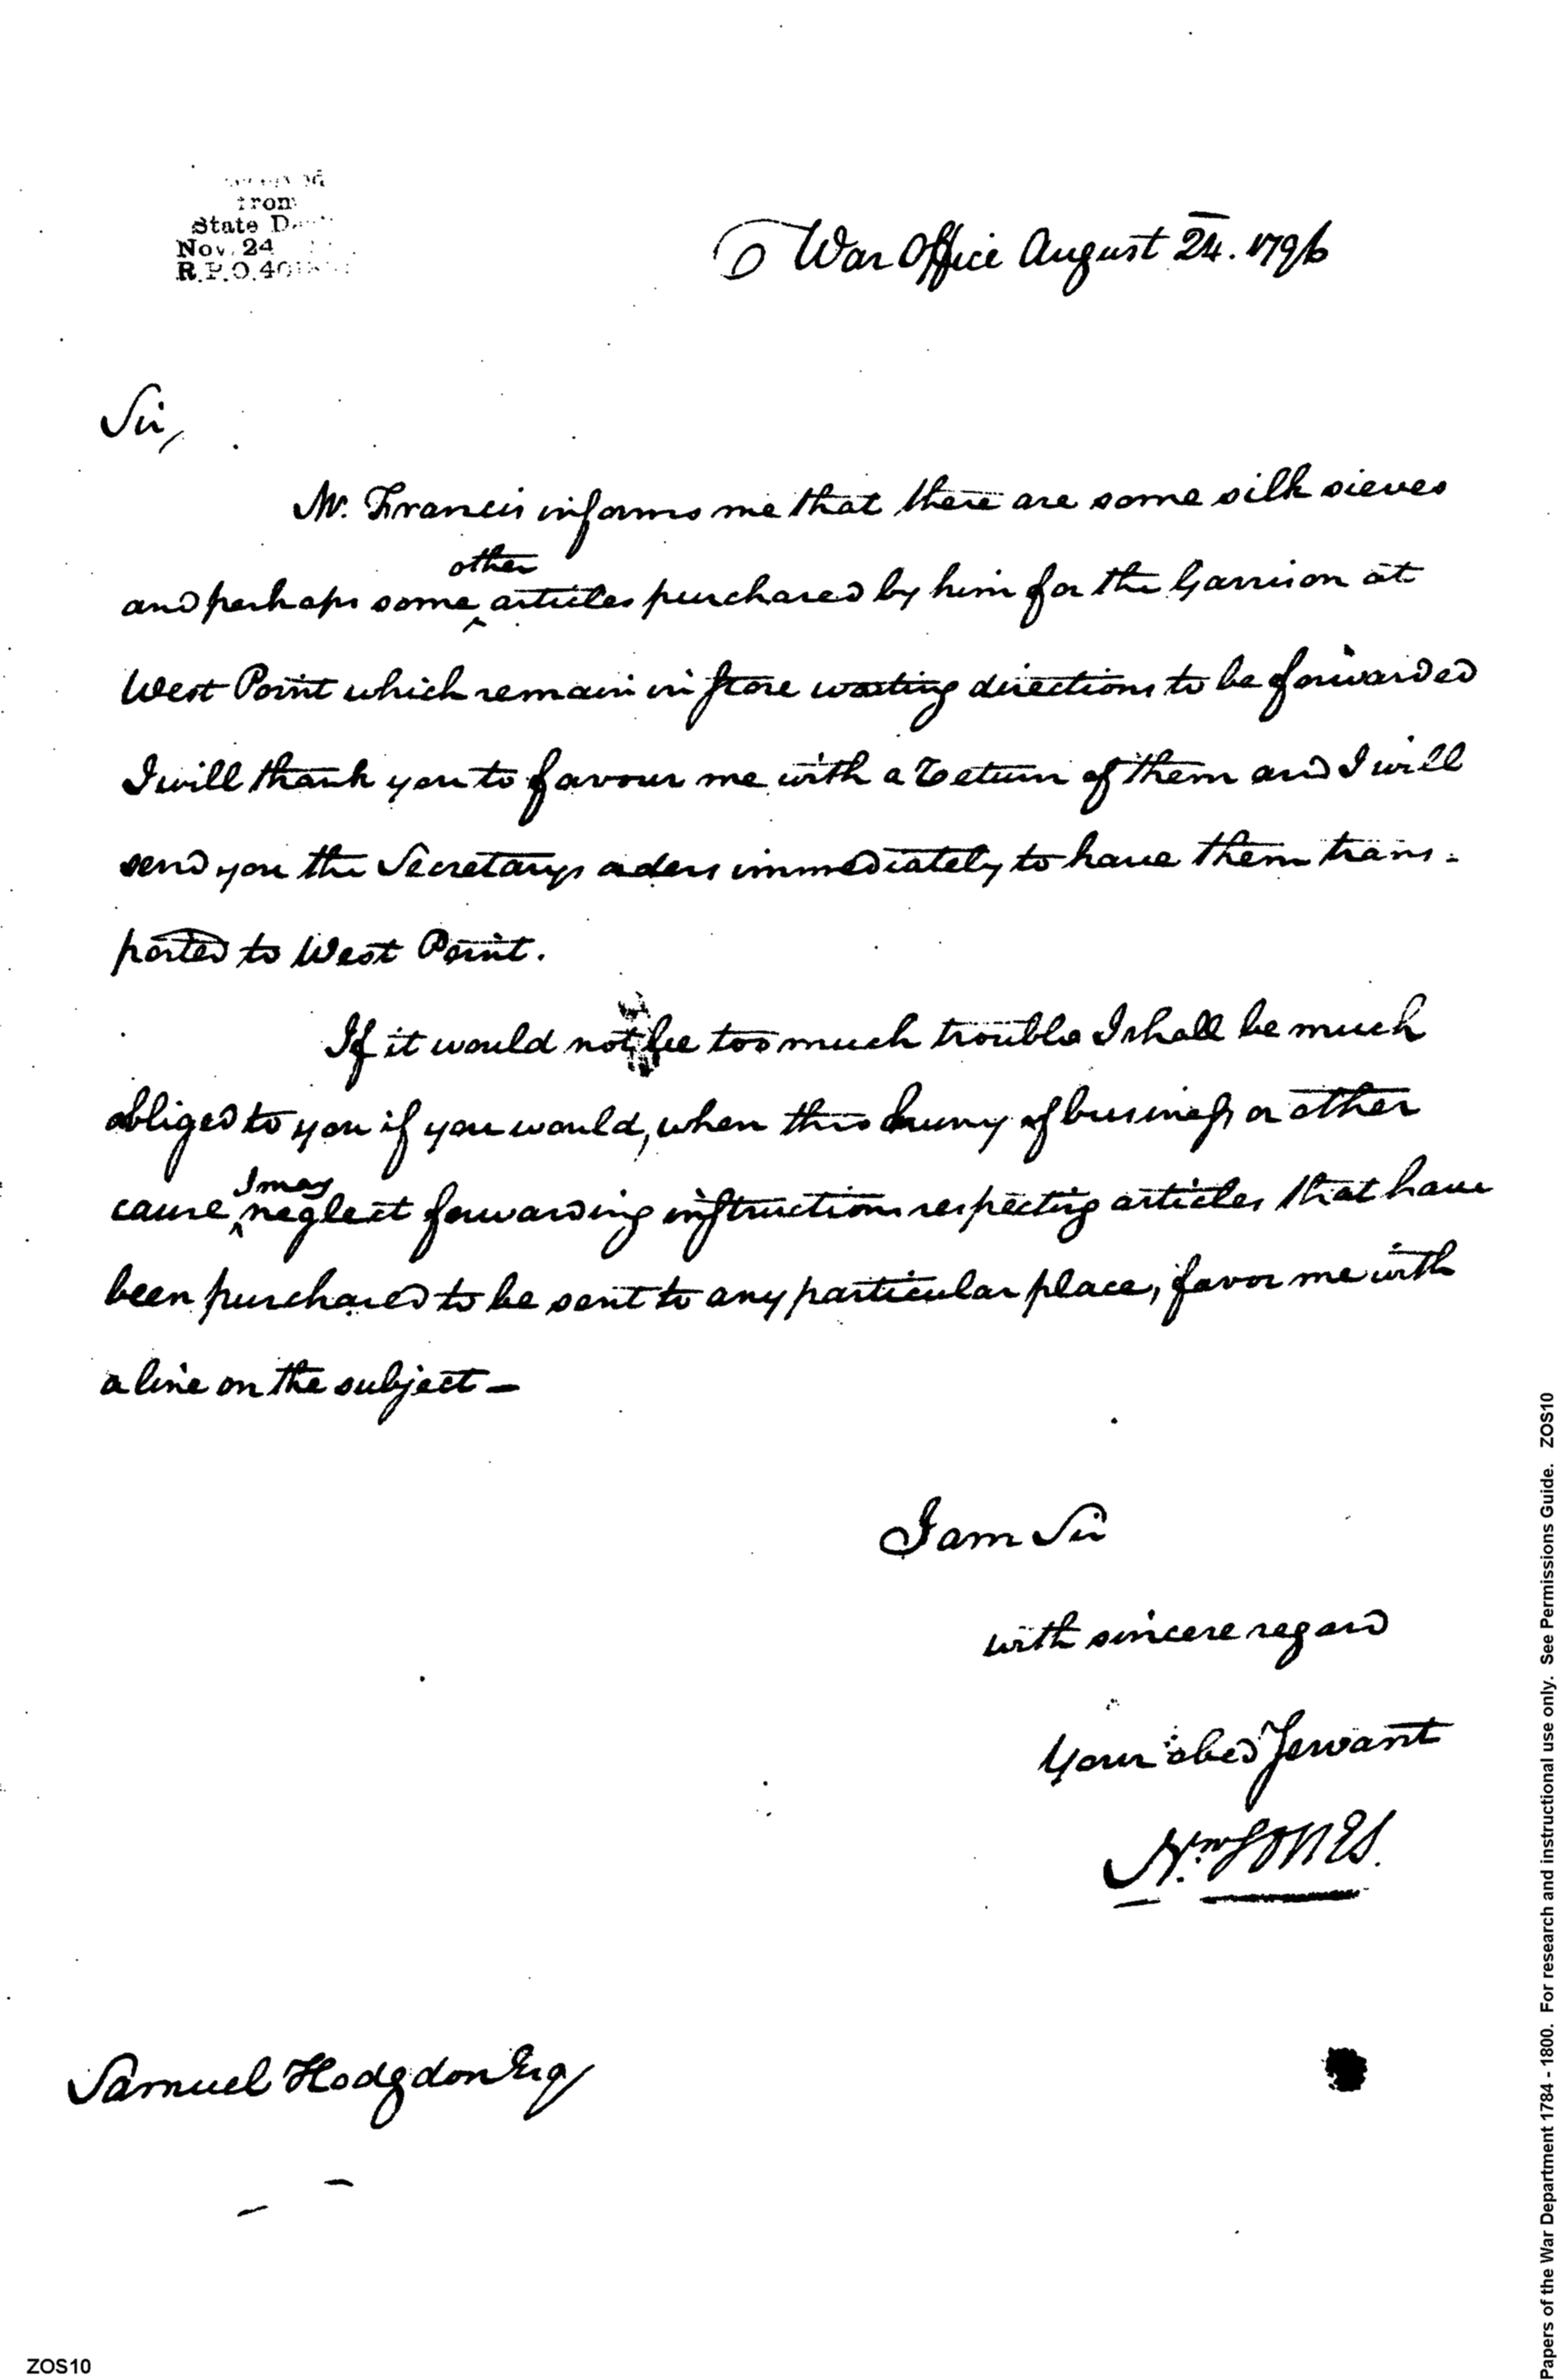 from
State
Nov. 24
R.P.O.
War Office August 24. 1796
Sir,
Mr. Francis informs me that there are some silk sieves
other
and perhaps some ^ articles purchased by him for the Garrison at
West Point which remain in store waiting directions to be forwarded
I will thank you to favour me with a Return of them and I will
send you the Secretarys orders immediately to have them trans-
ported to West Point.
If it would not be too much trouble I shall be much
obliged to you if you would, when thro hurry of business or other
I may
cause ^ neglect forwarding instructions respecting articles that have
been purchased to be sent to any particular place, favor me with
a line on the subject —
I am Sir
with sincere regard
Your obed Servant
Nn. Jones.
Samuel Hodgdon Esq
ZOS10
Papers of the War Department 1784 - 1800. For research and instructional use only. See Permissions Guide. ZOS10